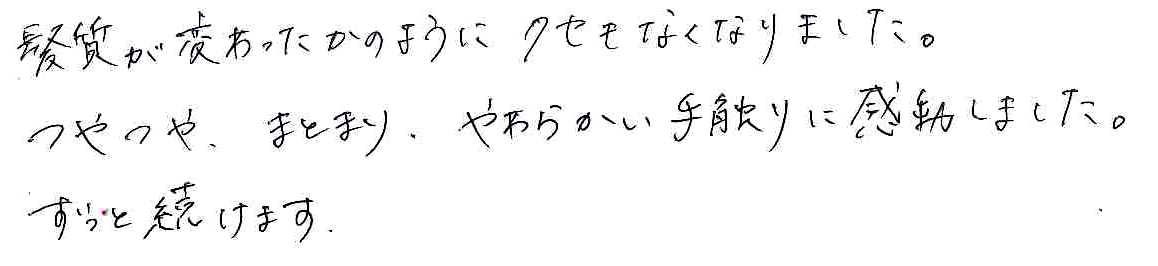 髪質が変わったかのように クセもなくなりました。
つやつや、まとまり、やわらかい手触りに感動しました。
ずっと続けます.